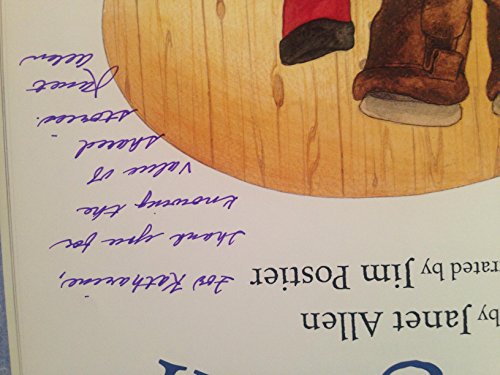 by Janet Allen
trated by Jim Postier
For Katharine,
Thank you for
knowing the
value of
shared
stories.
Janet
Allen